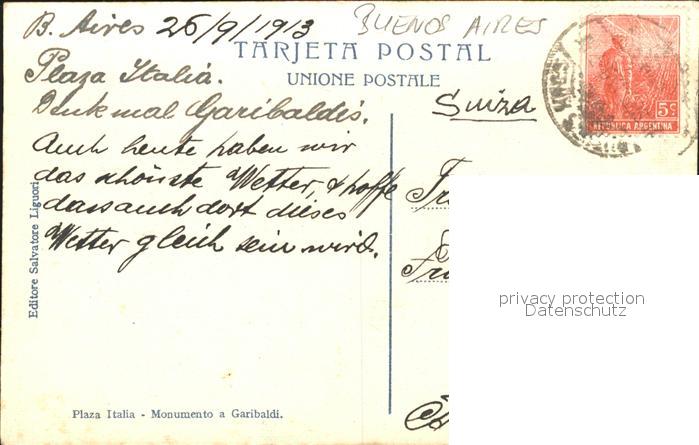 B. Aires 26/9/1913 BUENOS AIRES
TARJETA POSTAL
UNIONE POSTALE
Plaza Italia.
Denkmal Garibaldis.
Suiza
5c
REPUBLICA ARGENTINA
Auch heute haben wir
das schönste Wetter, & hoffe
dass auch dort dieses
Wetter gleich sein wird.
Editore Salvatore Liguori
privacy protection
Datenschutz
Plaza Italia - Monumento a Garibaldi.